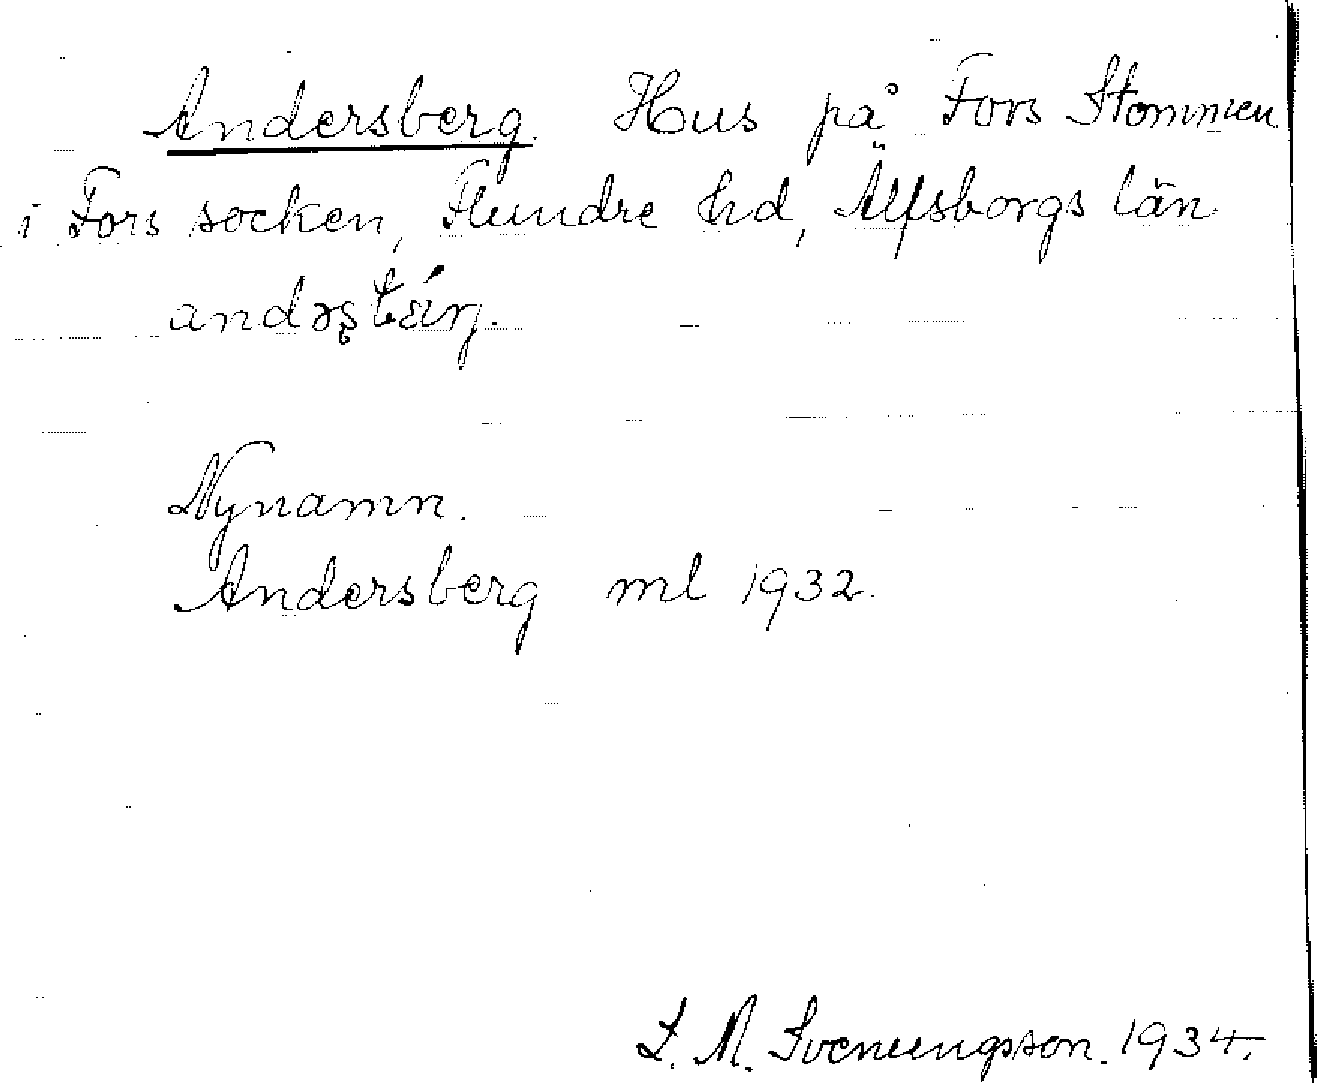 Andersberg. Hus på Fors Stommen
i Fors socken, Flundre hd, Älfsborgs län
Nynamn.
Andersberg ml 1932.
L. M. Svenungsson. 1934.